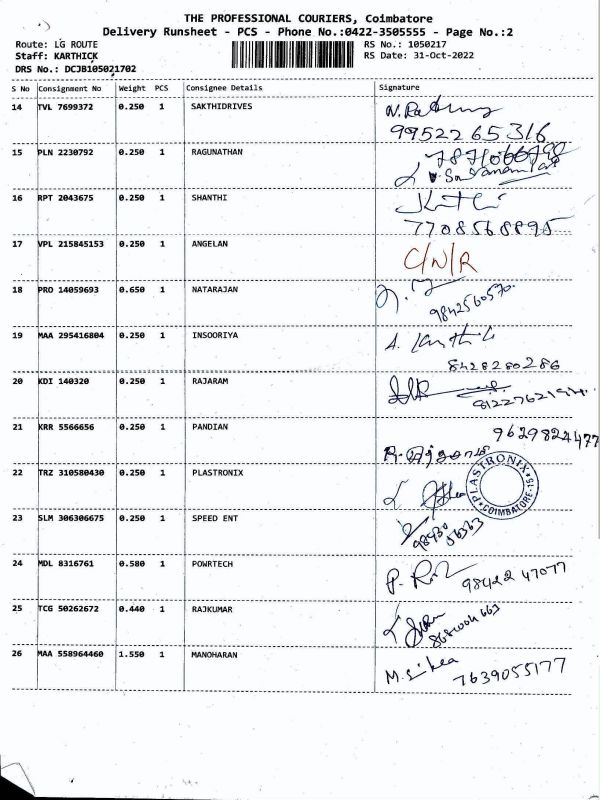 THE PROFESSIONAL COURIERS, Coimbatore
Delivery Runsheet - PCS - Phone No.:0422-3505555 - Page No.:2
Route: LG ROUTE RS No.: 1050217
Staff: KARTHICK RS Date: 31-Oct-2022
DRS No.: DCJB105021702
S No Consignment No Weight PCS Consignee Details Signature
14 TVL 7699372 0.250 1 SAKTHIDRIVES
9952265316
15 PLN 2230792 0.250 1 RAGUNATHAN
16 RPT 2043675 0.250 1 SHANTHI
7708568895
17 VPL 215845153 0.250 1 ANGELAN C/N/R
18 PRO 14059693 0.650 1 NATARAJAN
9842560570
19 MAA 295416804 0.250 1 INSOORIYA
8428280286
20 KDI 140320 0.250 1 RAJARAM
21 KRR 5566656 0.250 1 PANDIAN 9629824477
22 TRZ 310580430 0.250 1 PLASTRONIX
PLASTRONIX COIMBATORE-15
23 SLM 306306675 0.250 1 SPEED ENT
98430
56363
24 MDL 8316761 0.580 1 POWRTECH 98422 47077
25 TCG 50262672 0.440 1 RAJKUMAR
26 MAA 558964460 1.550 1 MANOHARAN 7639055177